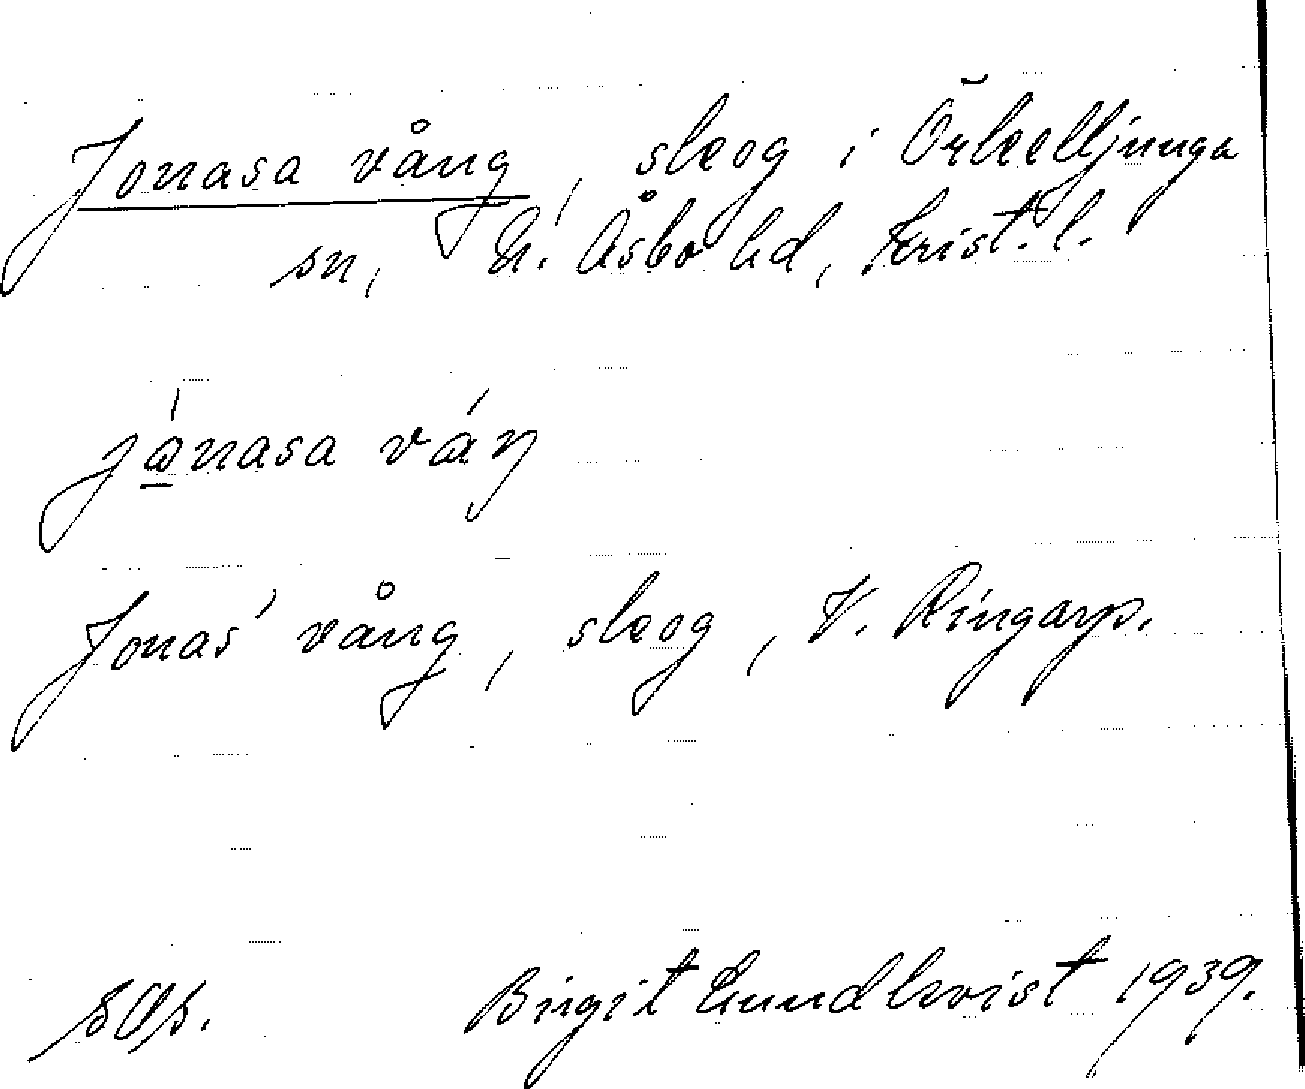 Jonasa vång, skog i Örkelljunga
sn, N. Åsbo hd, Krist. l.
jónasa váŋ
Jonas' vång, skog, V. Ringarp.
Birgit Lundkvist 1939.